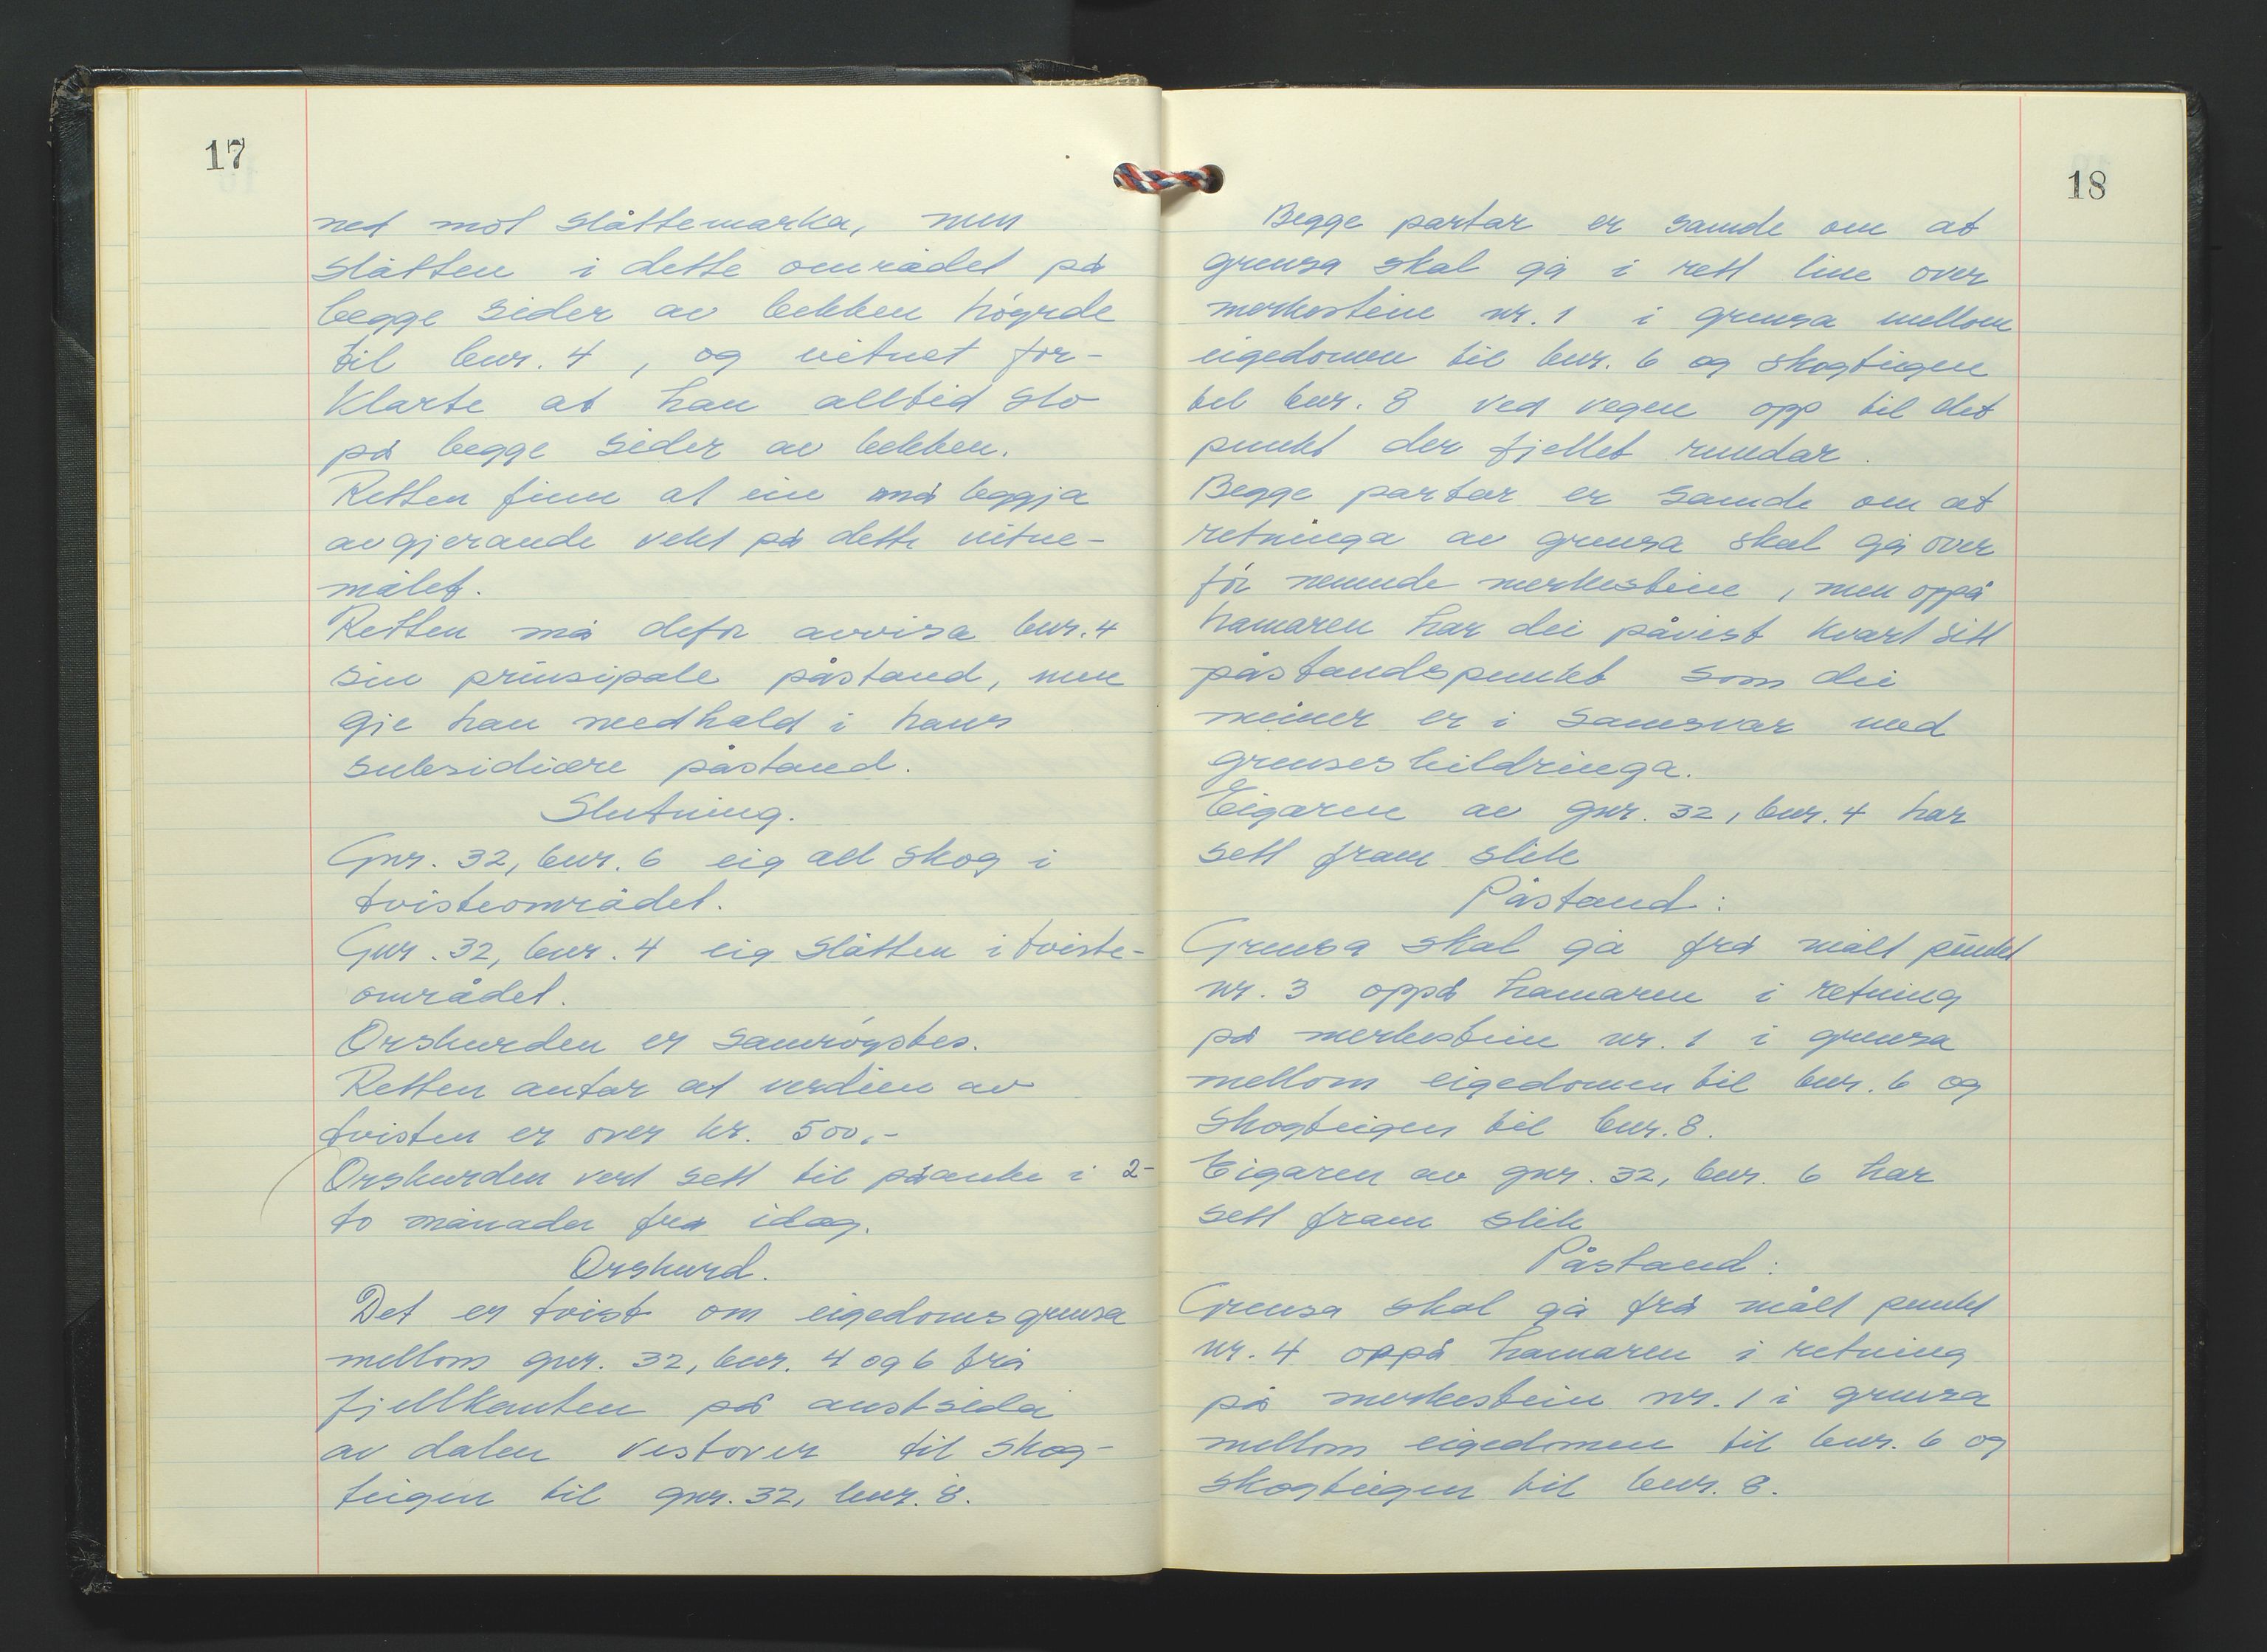 17
ned mot slåttemarka, men
slåtten i dette området på
begge sider av bekken høyrde
til bnr. 4, og vitnet for-
klarte at han alltid slo
på begge sider av bekken.
Retten finn at ein må leggja
avgjerande vekt på dette vitne-
målet.
Retten må defor avvisa bnr. 4
sin prinsipale påstand, men
gje han medhald i hans
subsidiære påstand.
Slutning.
Gnr. 32, bnr. 6 eig all skog i
tvisteområdet.
Gnr. 32, bnr. 4 eig slåtten i tviste-
området.
Orskurden er samrøystes.
Retten antar at verdien av
tvisten er over kr. 500,-
Orskurden vert sett til påanke i 2-
to månader frå idag.
Orskurd.
Det er tvist om eigedomsgrensa
mellom gnr. 32, bnr. 4 og 6 frå
fjellkanten på austsida
av dalen vestover til skog-
teigen til gnr. 32, bnr. 8.
18
Begge partar er samde om at
grensa skal gå i rett line over
merkestein nr. 1 i grensa mellom
eigedomen til bnr. 6 og skogteigen
til bnr. 8 ved vegen opp til det
punkt der fjellet rundar.
Begge partar er samde om at
retninga av grensa skal gå over
før nemnde merkestein, men oppå
hamaren har dei påvist kvart sitt
påstandspunkt som dei
meiner er i samsvar med
grenseskildringa.
Eigaren av gnr. 32, bnr. 4 har
sett fram slik
Påstand:
Grensa skal gå frå målt punkt
nr. 3 oppå hamaren i retning
på merkestein nr. 1 i grensa
mellom eigedomen til bnr. 6 og
skogteigen til bnr. 8.
Eigaren av gnr. 32, bnr. 6 har
sett fram slik
Påstand:
Grensa skal gå frå målt punkt
nr. 4 oppå hamaren i retning
på merkestein nr. 1 i grensa
mellom eigedomen til bnr. 6 og
skogteigen til bnr. 8.